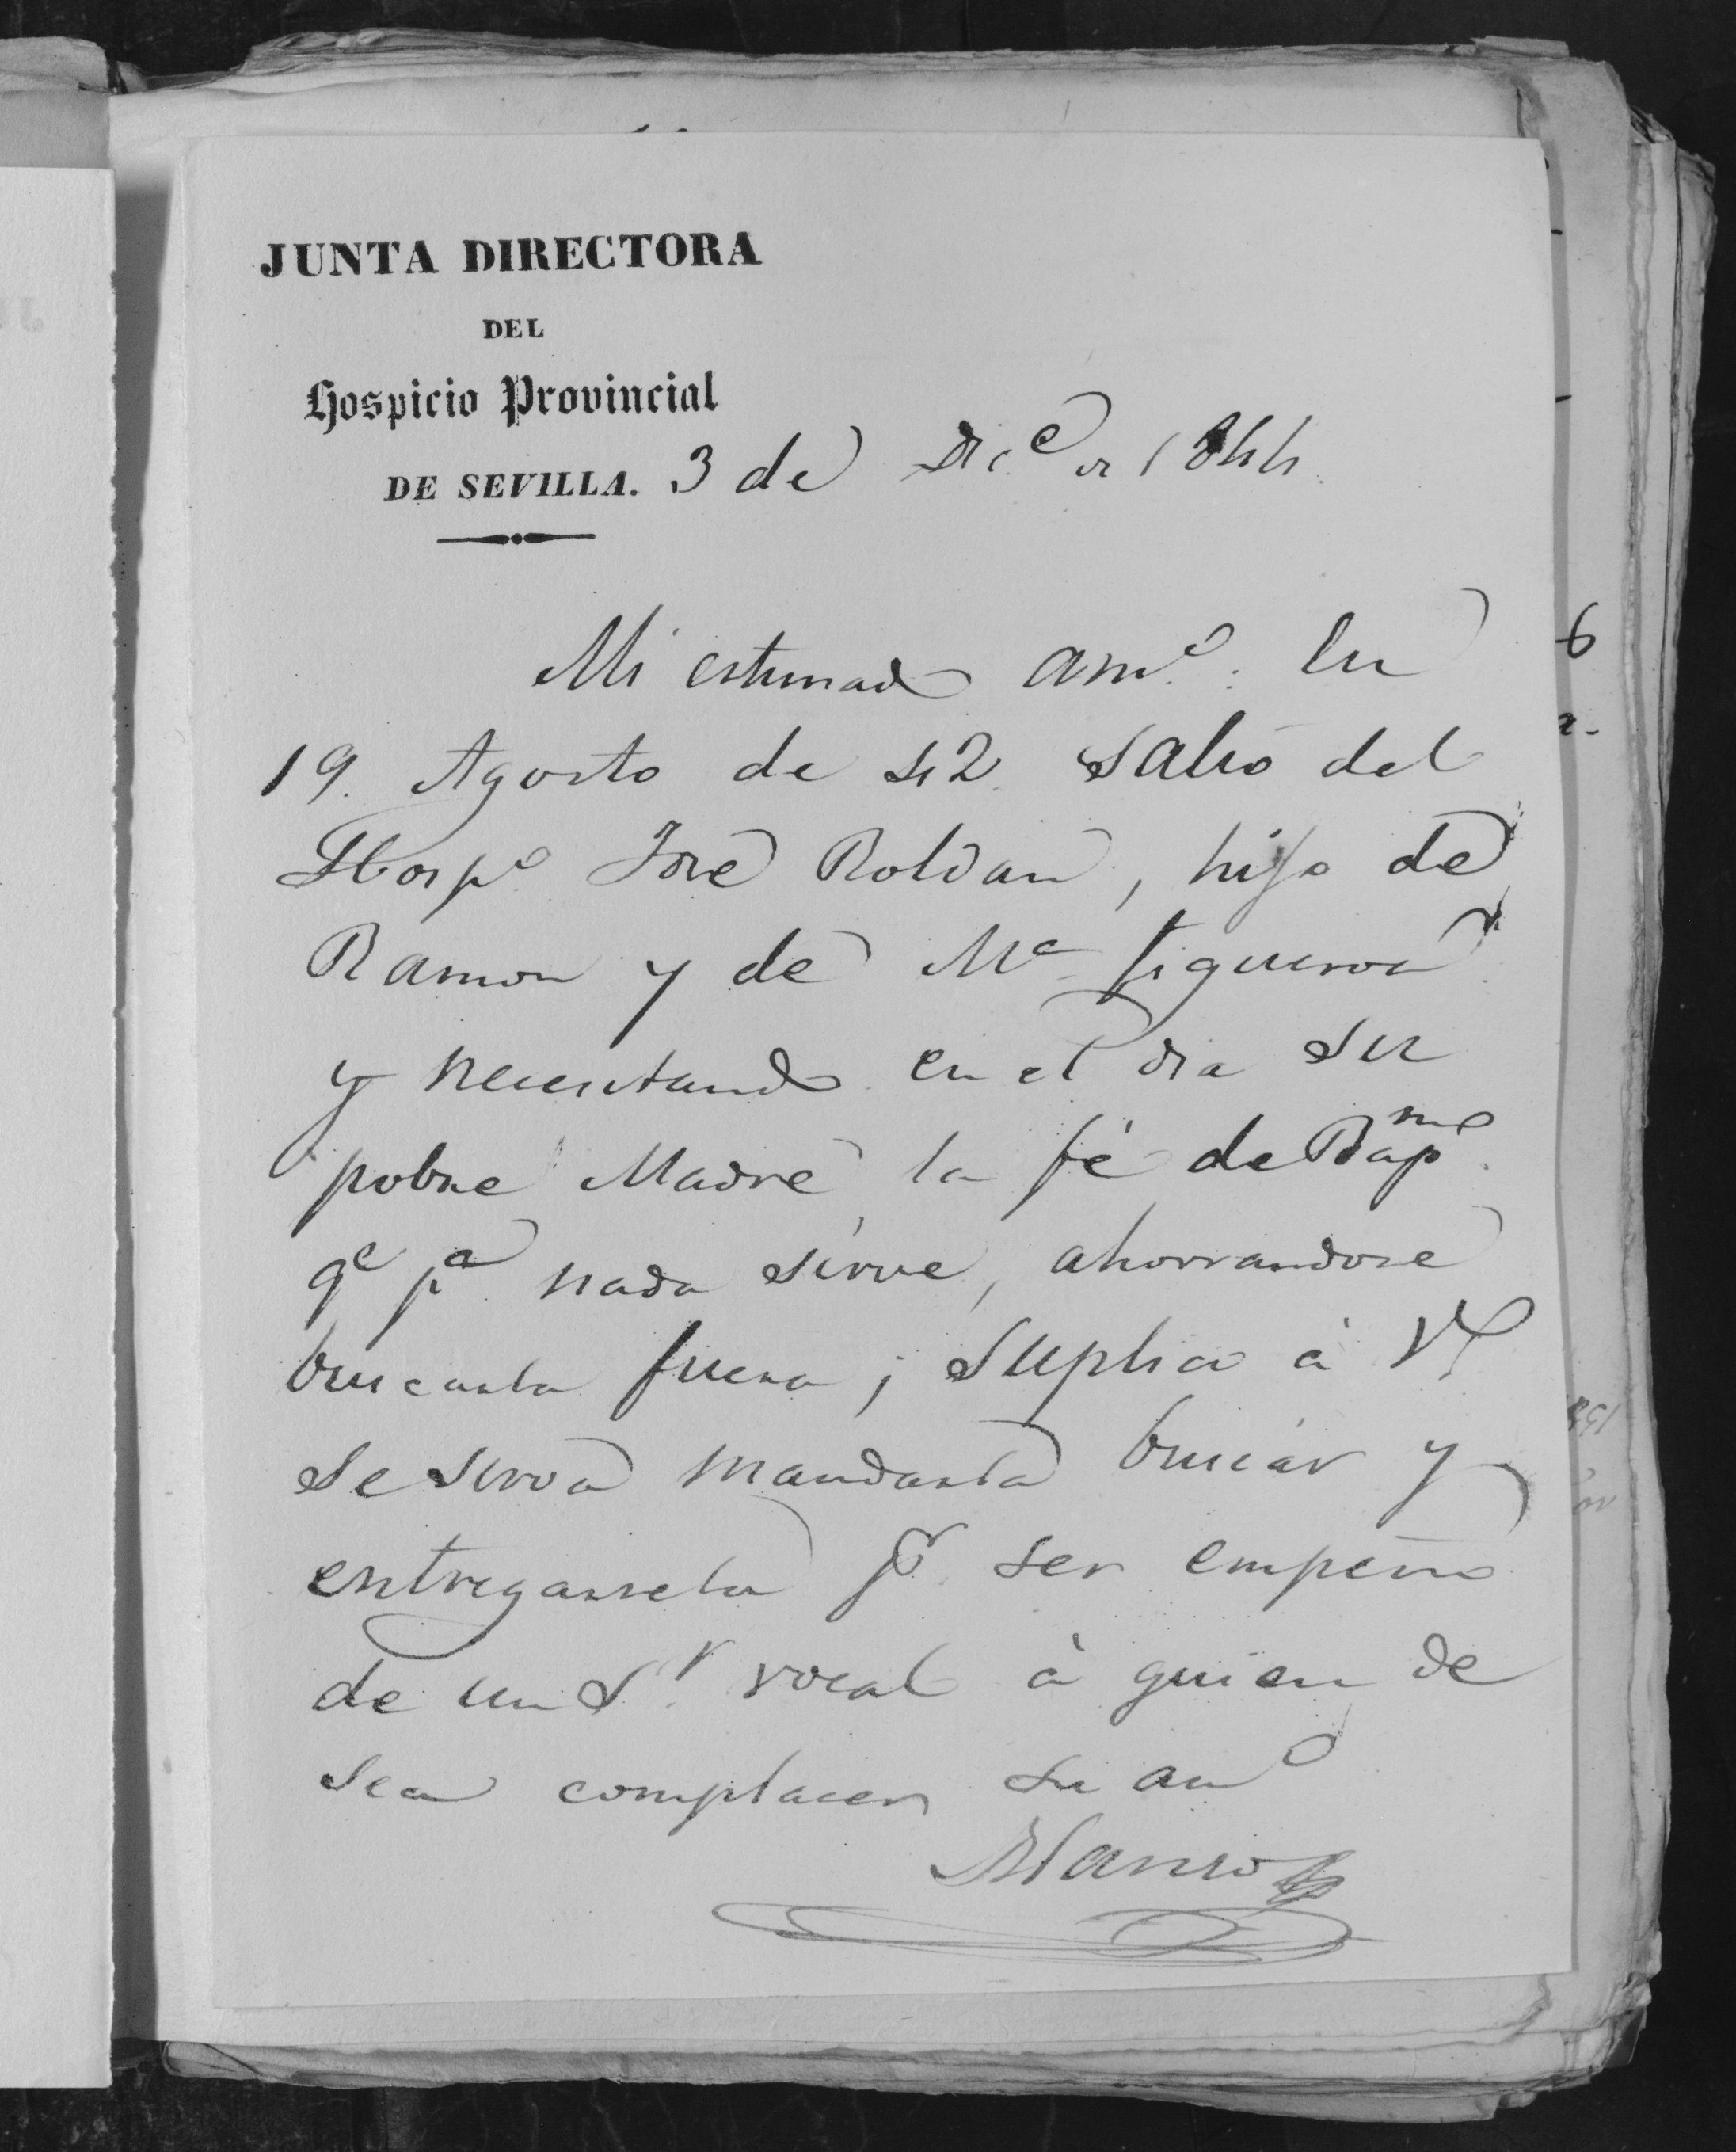 JUNTA DIRECTORA
DEL
Hospicio Provincial
DE SEVILLA. 3 de Dic.e de 1844
Mi estimado am.o: En
19. Agosto de 42. salió del
Hosp.o José Roldan, hijo de
Ramon y de M.a Figueroa
y necesitando en el dia su
pobre Madre la fé de Bap.mo
q.e p.a nada sirve, ahorrandose
buscarla fuera; suplico à V.
se sirva mandarla buscar y
entregarsela p.r ser empeño
de un S.r vocal à quien de
sea complacer su am.o
Manso